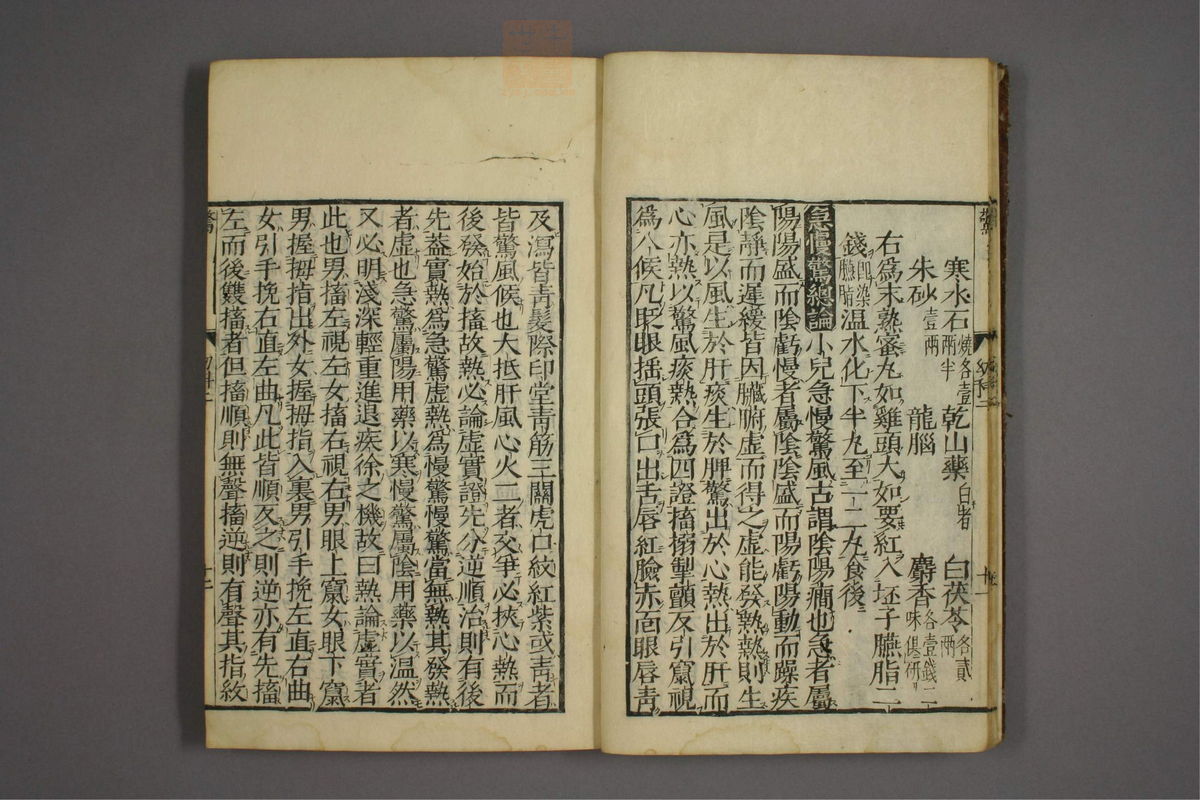 寒水石燒各壹兩半　乾山藥白者　白茯苓各貳兩
朱砂壹兩　龍腦　麝香各壹錢二味俱研
右爲末熟蜜丸如雞頭大如要紅入坯子臙脂二
錢即染臙脂溫水化下半丸至一二丸食後
急慢驚總論小兒急慢驚風古謂陰陽癎也急者屬
陽陽盛而陰虧慢者屬陰陰盛而陽虧陽動而躁疾
陰靜而遲緩皆因臟腑虛而得之虛能發熱熱則生
風是以風生於肝痰生於脾驚出於心熱出於肝而
心亦熱以驚風痰熱合爲四證搐搦掣顫反引竄視
爲八候凡眨眼搖頭張口出舌唇紅臉赤面眼唇靑
及瀉皆靑髮際印堂靑筋三關虎口紋紅紫或靑者
皆驚風候也大抵肝風心火二者交爭必挾心熱而
後發始於搐故熱必論虛實證先分逆順治則有後
先蓋實熱爲急驚虛熱爲慢驚慢驚當無熱其發熱
者虛也急驚屬陽用藥以寒慢驚屬陰用藥以溫然
又必明淺深輕重進退疾徐之機故曰熱論虛實者
此也男搐左視左女搐右視右男眼上竄女眼下竄
男握拇指出外女握拇指入裏男引手挽左直右曲
女引手挽右直左曲凡此皆順反之則逆亦有先搐
左而後雙搐者但搐順則無聲搐逆則有聲其指紋